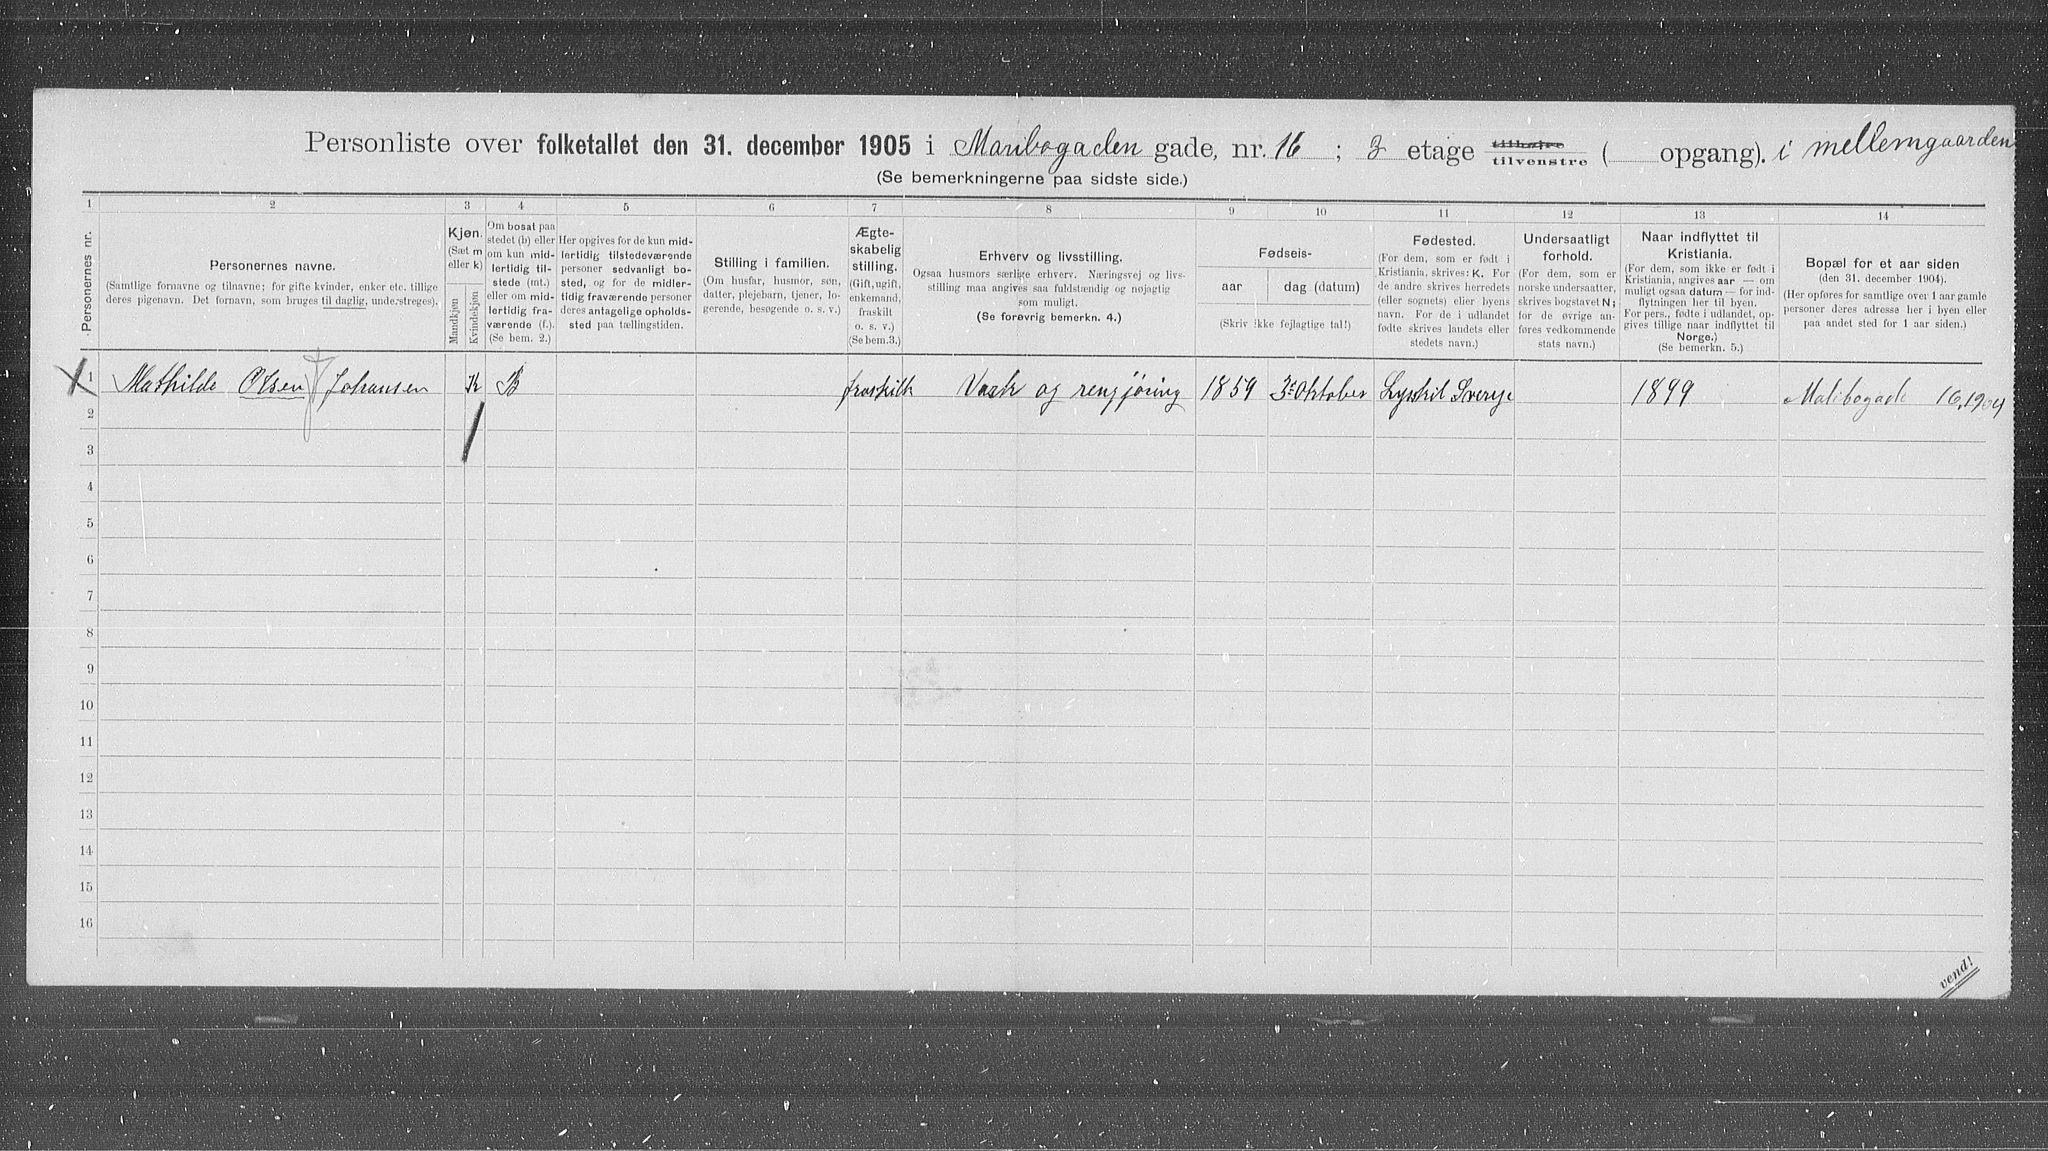 Personliste over folketallet den 31. december 1905 i Maribogaden gade, nr. 16 ; 3 etage tilhøjre tilvenstre ( opgang). i mellemgaarden
(Se bemerkningerne paa sidste side.)
1 2 3 4 5 6 7 8 9 10 11 12 13 14
Personernes nr.
Personernes navne.
(Samtlige fornavne og tilnavne; for gifte kvinder, enker etc. tillige
deres pigenavn. Det fornavn, som bruges til daglig, understreges).
Kjøn.
(Sæt m
eller k)
Mandkjøn
Kvindekjøn
Om bosat paa
stedet (b) eller
om kun mid-
lertidig til-
stede (mt.)
eller om mid-
lertidig fra-
værende (f.).
(Se bem. 2.)
Her opgives for de kun mid-
lertidig tilstedeværende
personer sedvanligt bo-
sted, og for de midler-
tidig fraværende personer
deres antagelige opholds-
sted paa tællingstiden.
Stilling i familien.
(Om husfar, husmor, søn,
datter, plejebarn, tjener, lo-
gerende, besøgende o. s. v.)
Ægte-
skabelig
stilling.
(Gift, ugift,
enkemand,
fraskilt
o. s. v.)
(Se bem. 3.)
Erhverv og livsstilling.
Ogsaa husmors særlige erhverv. Næringsvej og livs-
stilling maa angives saa fuldstændig og nøjagtig
som muligt.
(Se forøvrig bemerkn. 4.)
Fødsels-
aar
dag (datum)
(Skriv ikke fejlagtige tal!)
Fødested.
(For dem, som er født i
Kristiania, skrives: K. For
de andre skrives herredets
(eller sognets) eller byens
navn. For de i udlandet
fødte skrives landets eller
stedets navn.)
Undersaatligt
forhold.
(For dem, som er
norske undersaatter,
skrives bogstavet N;
for de øvrige an-
føres vedkommende
stats navn.)
Naar indflyttet til
Kristiania.
(For dem, som ikke er født i
Kristiania, angives aar — om
muligt ogsaa datum — for ind-
flytningen her til byen.
For pers., fødte i udlandet, op-
gives tillige naar indflyttet til
Norge.)
(Se bemerkn. 5.)
Bopæl for et aar siden
(den 31. december 1904).
(Her opføres for samtlige over 1 aar gamle
personer deres adresse her i byen eller
paa andet sted for 1 aar siden.)
1 Mathilde Olsen Johansen K B fraskilt Vask og rengjøring 1859 3 Oktober Lysekil Sverje 1899 Malibogade 16, 1904
2
3
4
5
6
7
8
9
10
11
12
13
14
15
16
vend!